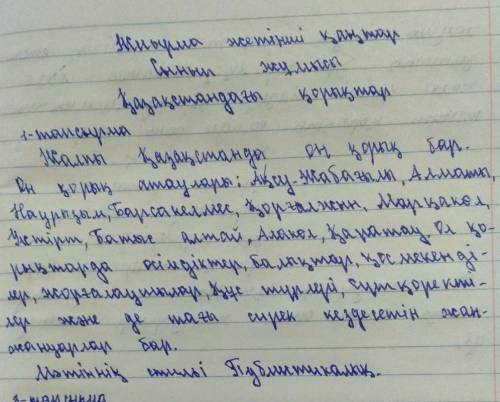 Жиырма жетінші қаңтар
Сынып жұмысы
Қазақстандағы қорықтар
1-тапсырма
Жалпы Қазақстанды он қорық бар.
Он қорық атаулары: Ақсу-Жабағылы, Алматы,
Наурызым, Барсакелмес, Қорғалжын, Марқакөл,
Үстірт, Батыс алтай, Алакөл, Қаратау. Ол қо-
рықтарда өсімдіктер, балықтар, қос мекенді-
лер, жорғалаушылар, құс түрлері, сүт қоректі-
лер және де тағы сирек кездесетін жан-
жануарлар бар.
Мәтіннің стилі Публистикалық.
2-тапсырма